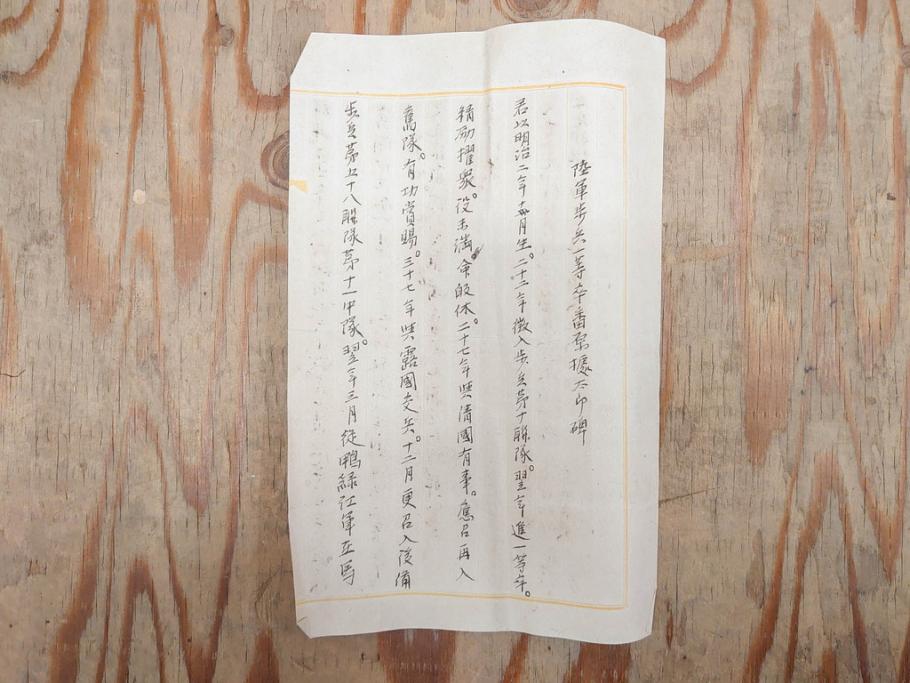 陸軍歩兵一等卒番原據太郎碑
君以明治二年十一月生。二十二年徴入歩兵第十聯隊。翌年進一等卒。
精励擢衆。役未満命皈休。二十七年與清國有事。應召再入
舊隊。有功賞賜。三十七年與露國交兵。十二月更召入後備
歩兵第五十八聯隊第十一中隊。翌年三月従鴨緑江軍在馬